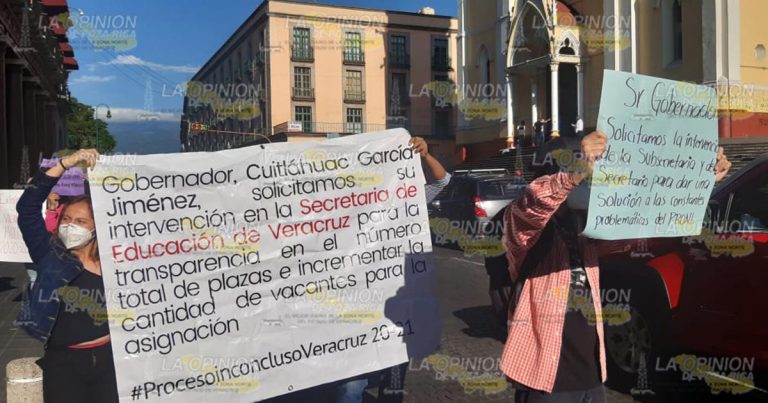 Gobernador, Cuitláhuac García
Jiménez, solicitamos su
intervención en la Secretaria de
Educación de Veracruz para la
transparencia en el número
total de plazas e incrementar la
cantidad de vacantes para la
asignación
#ProcesoinconclusoVeracruz 20-21
Sr Gobernador
Solicitamos la intervención
de la Subsecretaria y del
Secretario para dar una
Solución a las constantes
problemáticas del
LA OPINIÓN
DE POZA RICA
LA OPINIÓN
DE LA ZONA NORTE